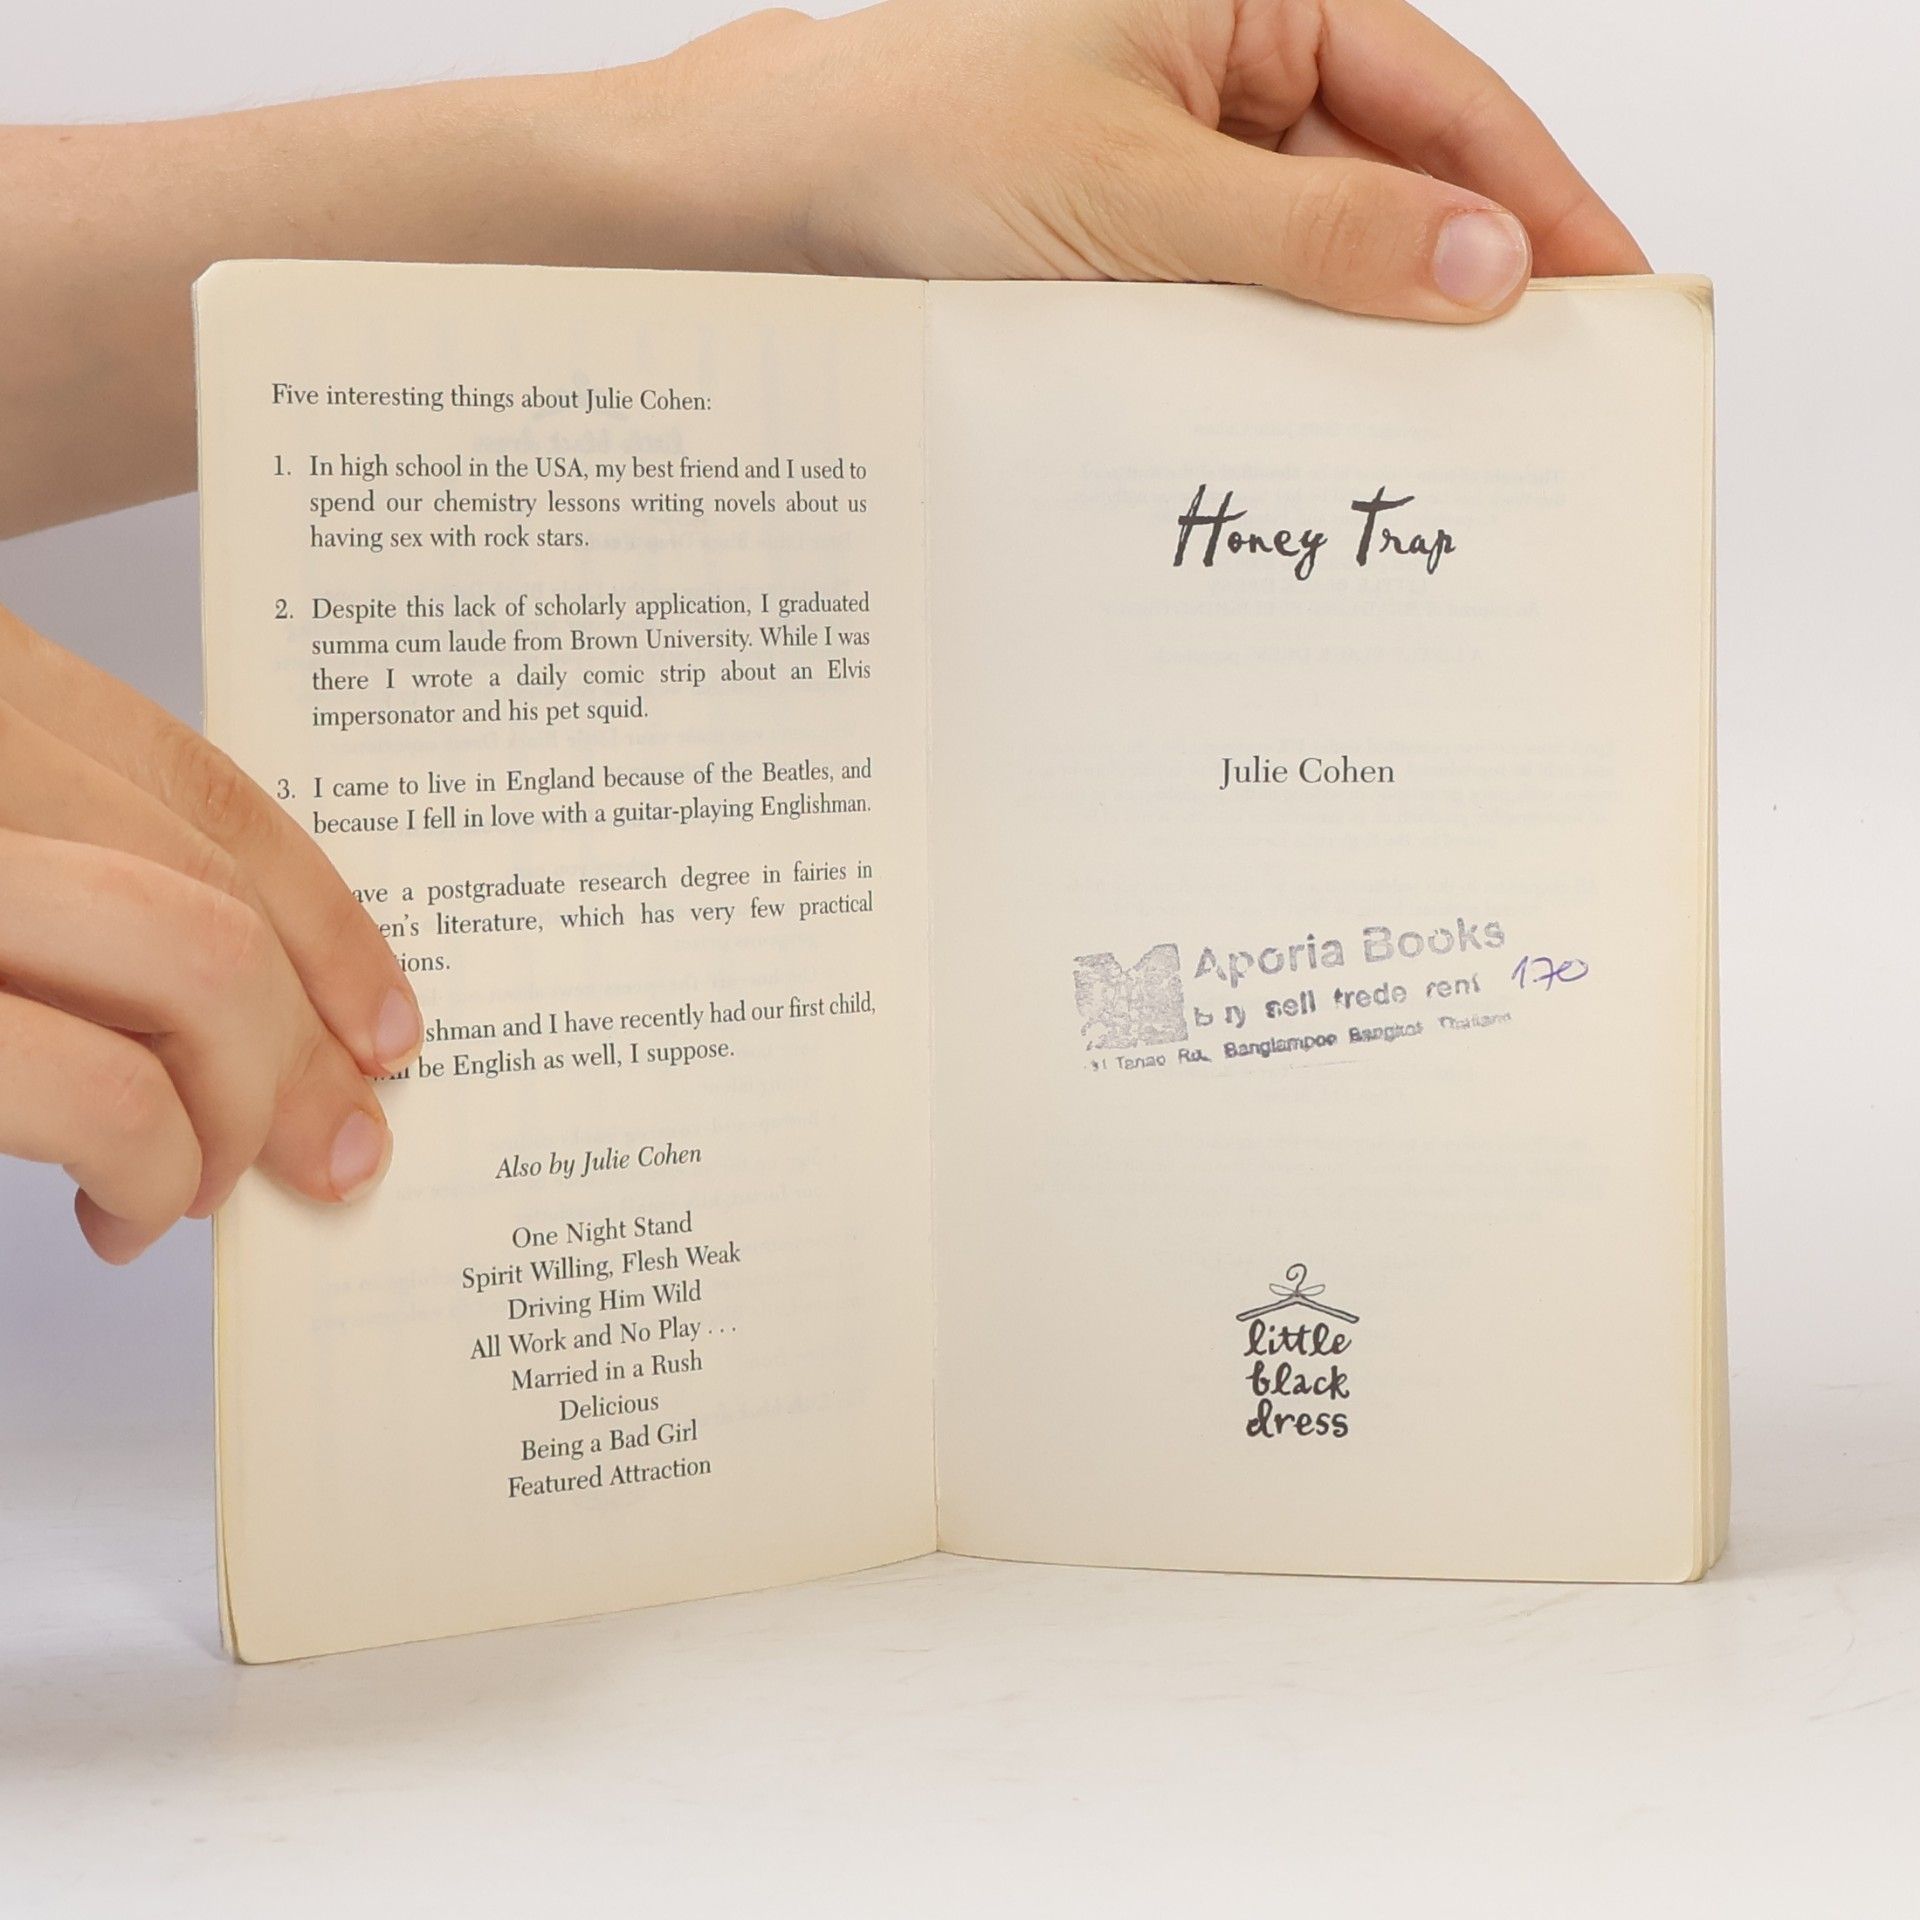 Five interesting things about Julie Cohen:
1. In high school in the USA, my best friend and I used to
spend our chemistry lessons writing novels about us
having sex with rock stars.
2. Despite this lack of scholarly application, I graduated
summa cum laude from Brown University. While I was
there I wrote a daily comic strip about an Elvis
impersonator and his pet squid.
3. I came to live in England because of the Beatles, and
because I fell in love with a guitar-playing Englishman.
a postgraduate research degree in fairies in
literature, which has very few practical
and I have recently had our first child,
be English as well, I suppose.
Also by Julie Cohen
One Night Stand
Spirit Willing, Flesh Weak
Driving Him Wild
All Work and No Play . . .
Married in a Rush
Delicious
Being a Bad Girl
Featured Attraction
Honey Trap
Julie Cohen
Aporia Books
sell trade rent 170
Tanao Rd, Banglampoo Bangkok Thailand
little
black
dress